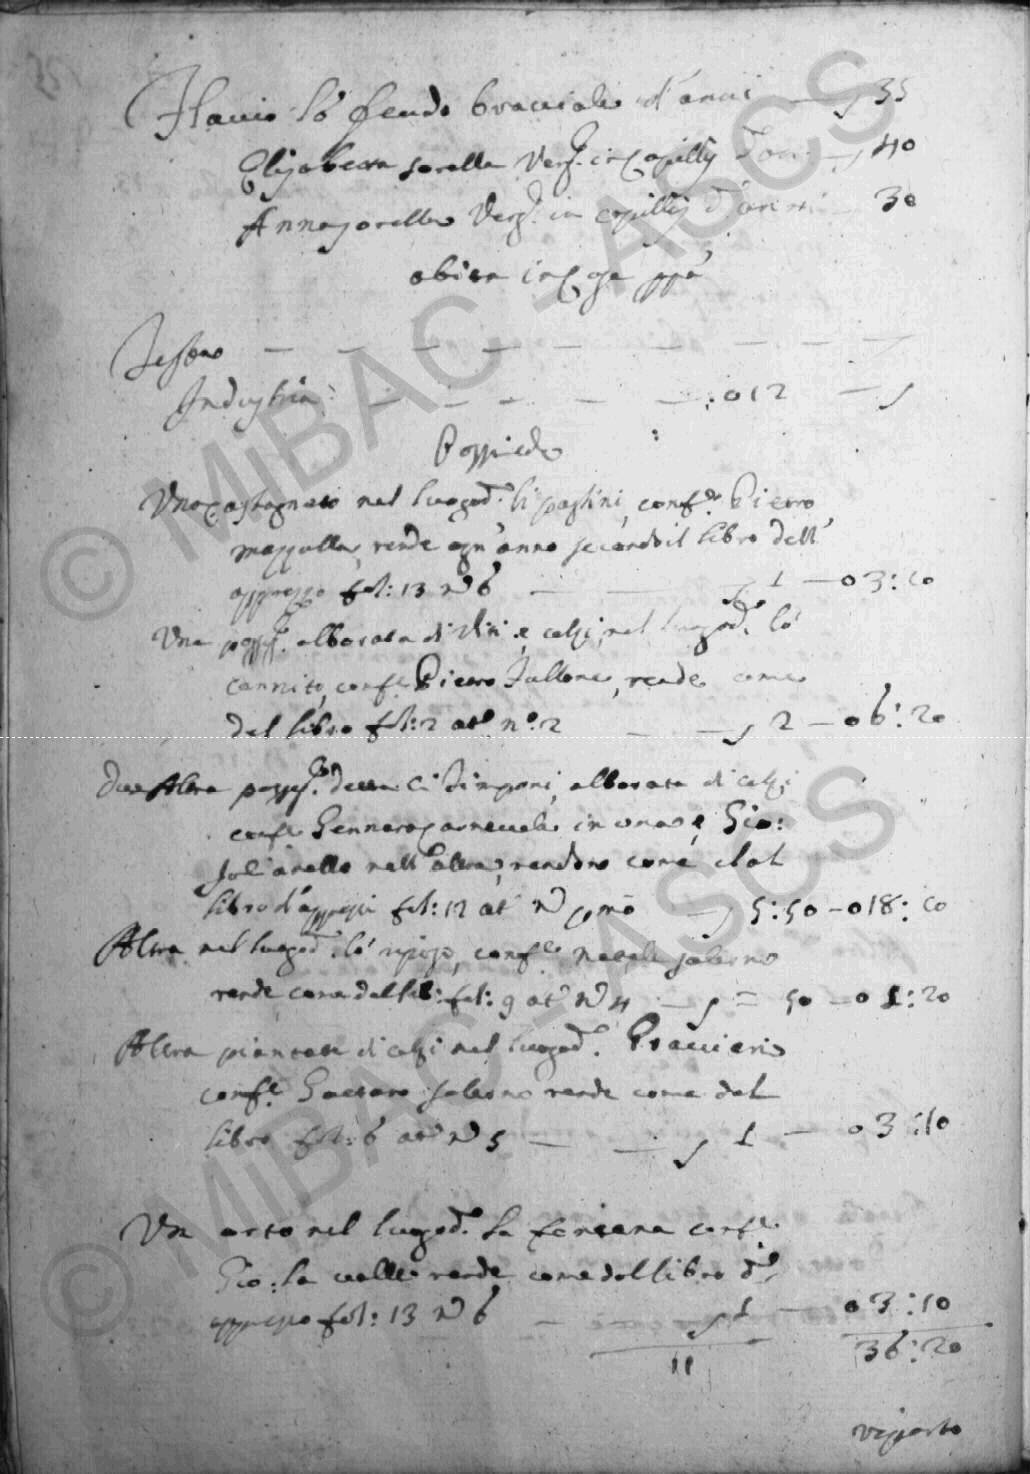 Flavio lo feudo bracciale d'anni — 35
Elisabetta sorella Verg.e in capillis d'anni — 40
Anna sorella Verg.e in capillis d'anni — 30
abita in casa pp.a
Testono — — — — — — — — —
Industria — — — — — : 012 — —
Possiede
Uno castagneto nel luogo d.o li pastini, conf.e Pietro
mazzulla, rende ogn'anno secondo il libro dell'
apprezzo fol: 13 n.o 6 — — 1 — 03:10
Una possess.e alborata di Viti, e celzi, nel luogo d.o lo
cannito, conf.e Pietro Tallone, rende come
del libro fol: 2 at.o n.o 2 — — 2 — 06:20
Due Altra possess.e detta li Timponi, alborata di celzi
conf.e Gennaro carnevale in una, e Gio:
anello nell'altra, rendono come dal
libro d'apprezzi fol: 12 at.o n.o p.mo — 5:50 — 018:10
Altra nel luogo d.o lo riposo, conf.e natale salerno
rende come dal lib: fol: 9 at.o n.o 4 — = 50 — 01:20
Altra piantata di celzi nel luogo d.o Pravieri
conf.e Gaetano salerno rende come dal
libro fol: 6 at.o n.o 5 — — 1 — 03:10
Un orto nel luogo d.o la fontana conf.e
Gio: la valle rende come dal libro d'
apprezzo fol: 13 n.o 6 — — 1 — 03:10
11 36:20
riporto
© MiBAC - ASCS
© MiBAC - ASCS